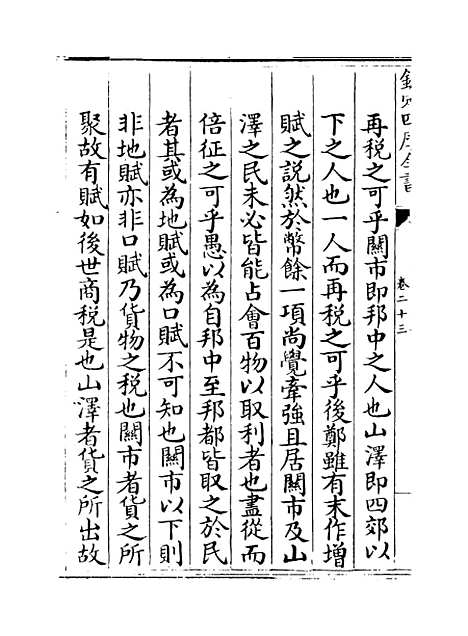 再税之可乎關市即邦中之人也山澤即四郊以
下之人也一人而再税之可乎後鄭雖有末作增
賦之説然於幣餘一項尚覺牽强且居關市及山
澤之民未必皆能占會百物以取利者也盡從而
倍征之可乎愚以為自邦中至邦都皆取之於民
者其或為地賦或為口賦不可知也關市以下則
非地賦亦非口賦乃貨物之税也關市者貨之所
聚故有賦如後世商税是也山澤者貨之所出故
欽定四庫全書
卷二十三